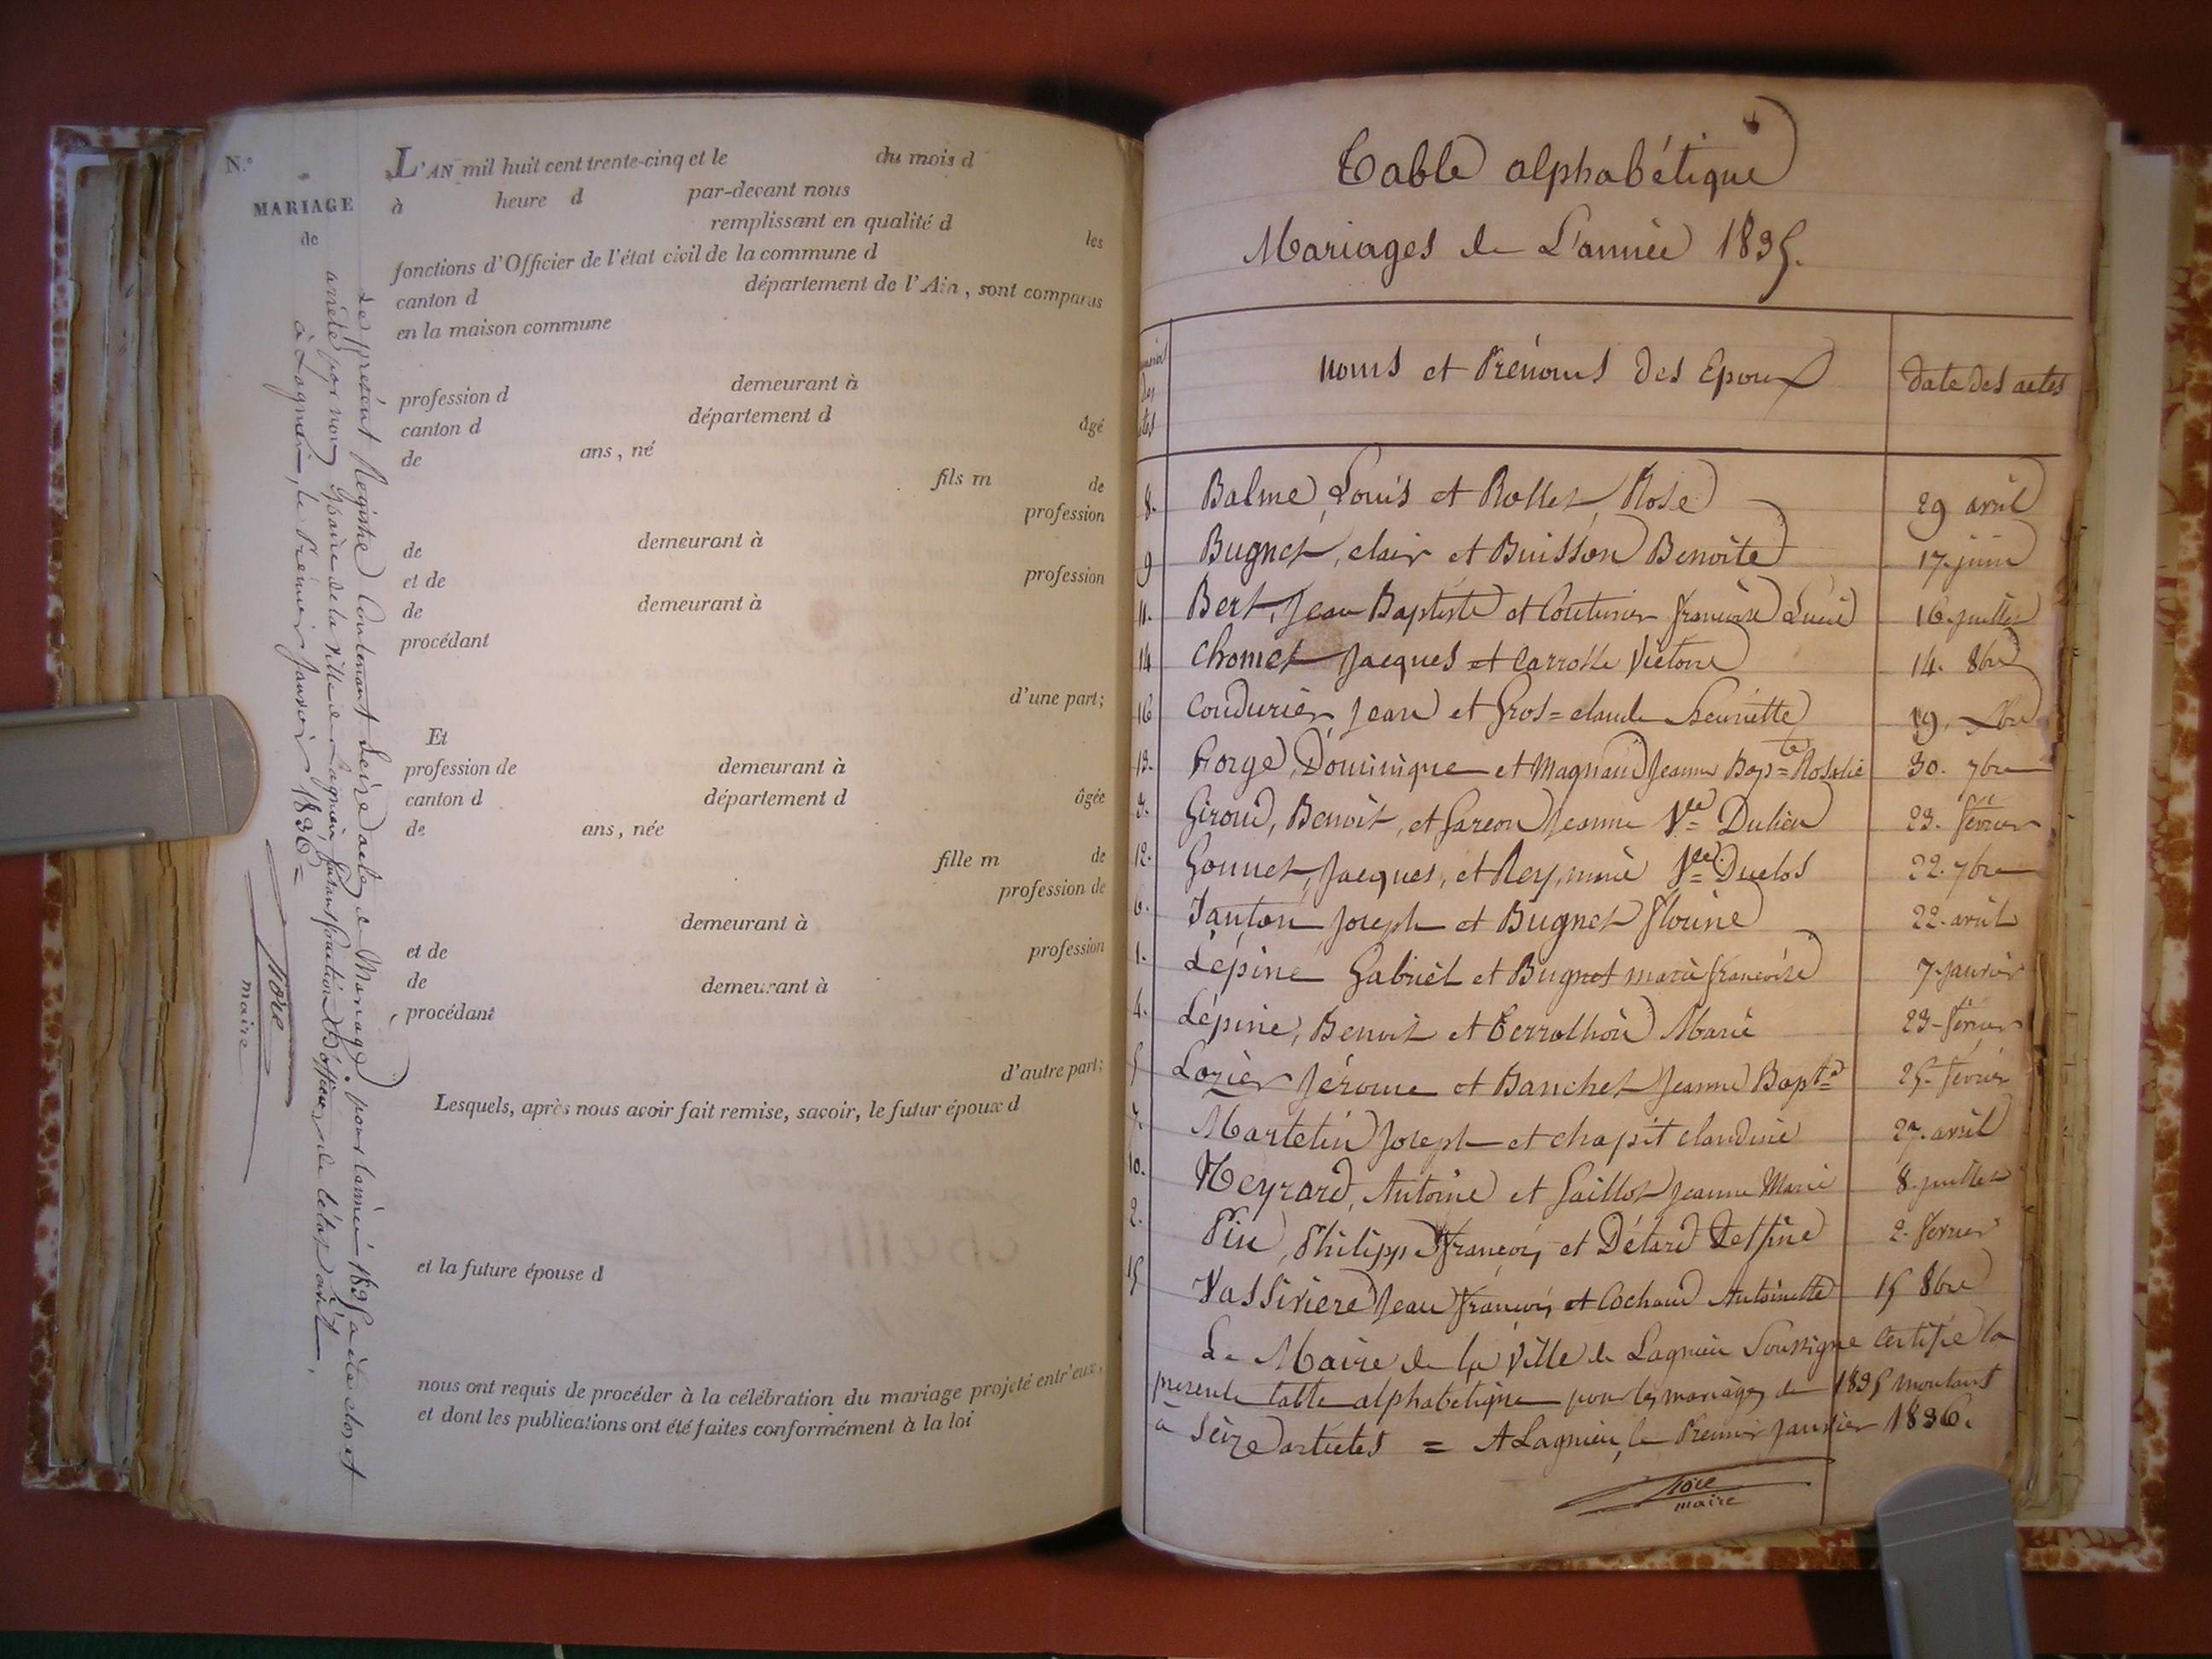 N.°
MARIAGE
de
L'AN mil huit cent trente-cinq et le du mois d
à heure d par-devant nous
remplissant en qualité d les
fonctions d'Officier de l'état civil de la commune d
canton d département de l'Ain, sont comparus
en la maison commune
profession d demeurant à
canton d département d âgé
de ans, né
fils m de
profession
de demeurant à
et de profession
de demeurant à
procédant
d'une part;
Et
profession de demeurant à
canton d département d âgée
de ans, née
fille m de
profession de
demeurant à
et de profession
de demeurant à
procédant
d'autre part;
Lesquels, après nous avoir fait remise, savoir, le futur époux d
et la future épouse d
nous ont requis de procéder à la célébration du mariage projeté entr'eux,
et dont les publications ont été faites conformément à la loi
Le présent Registre Contenant Seize actes de Mariage, pour l'année 1835 a été clos et
arrêté par nous Maire de la ville de Lagnieu faisant fonction d'officier de l'état civil,
à Lagnieu, le Premier Janvier 1836 =
maire
Table alphabétique
Mariages de L'année 1835.
des noms et Prénoms des Epoux date des actes
8. Balme, Louis et Rollet, Rose 29 avril
9 Bugnet, clair et Buisson Benoite 17. juin
11. Bert, Jean Baptiste et Couturier francoise Lucie 16. juillet
14 Chomet Jacques et Carrotte Victoire 14. 8bre
16 Coudurier, Jean et Gros=claude henriette 19. Xbre
13. Forge, Dominique et Magnaud Jeanne Bap=te Rosalie 30. 7bre
3. Giroud, Benoit, et Garcon Jeanne Ve= Dulieu 23. février
12. Gonnet, Jacques, et Rey, marie Ve= Duclos 22. 7bre
6. Janton Joseph et Bugnet florine 22. avril
1. Lépine Gabriel et Bugnet marie francoise 7. janvier
4. Lépine, Benoit et Terrolhon Marie 23 février
5 Lozier Jérome et Banchet Jeanne Bapte 25. février
7. Martelin Joseph et chapit claudine 27. avril
10. Neyrard, Antoine et Gaillot Jeanne Marie 8. juillet
2. Pin, Philippe françois et Détard Delfine 2. février
15 Vassiviere Jean françois et Cochaud Antoinette 15 8bre
Le Maire de la Ville de Lagnieu Soussigné Certifie la
presente table alphabetique pour les mariages de 1835 montant
à Seize articles = A Lagnieu, le Premier Janvier 1836.
maire